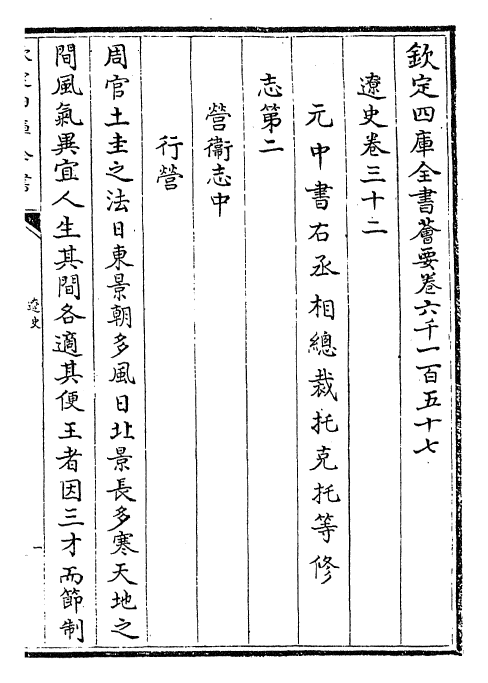 欽定四庫全書薈要卷六千一百五十七
遼史卷三十二
元中書右丞相總裁托克托等修
志第二
營衞志中
行營
周官土圭之法日東景朝多風日北景長多寒天地之
間風氣異宜人生其間各適其便王者因三才而節制
遼史
一